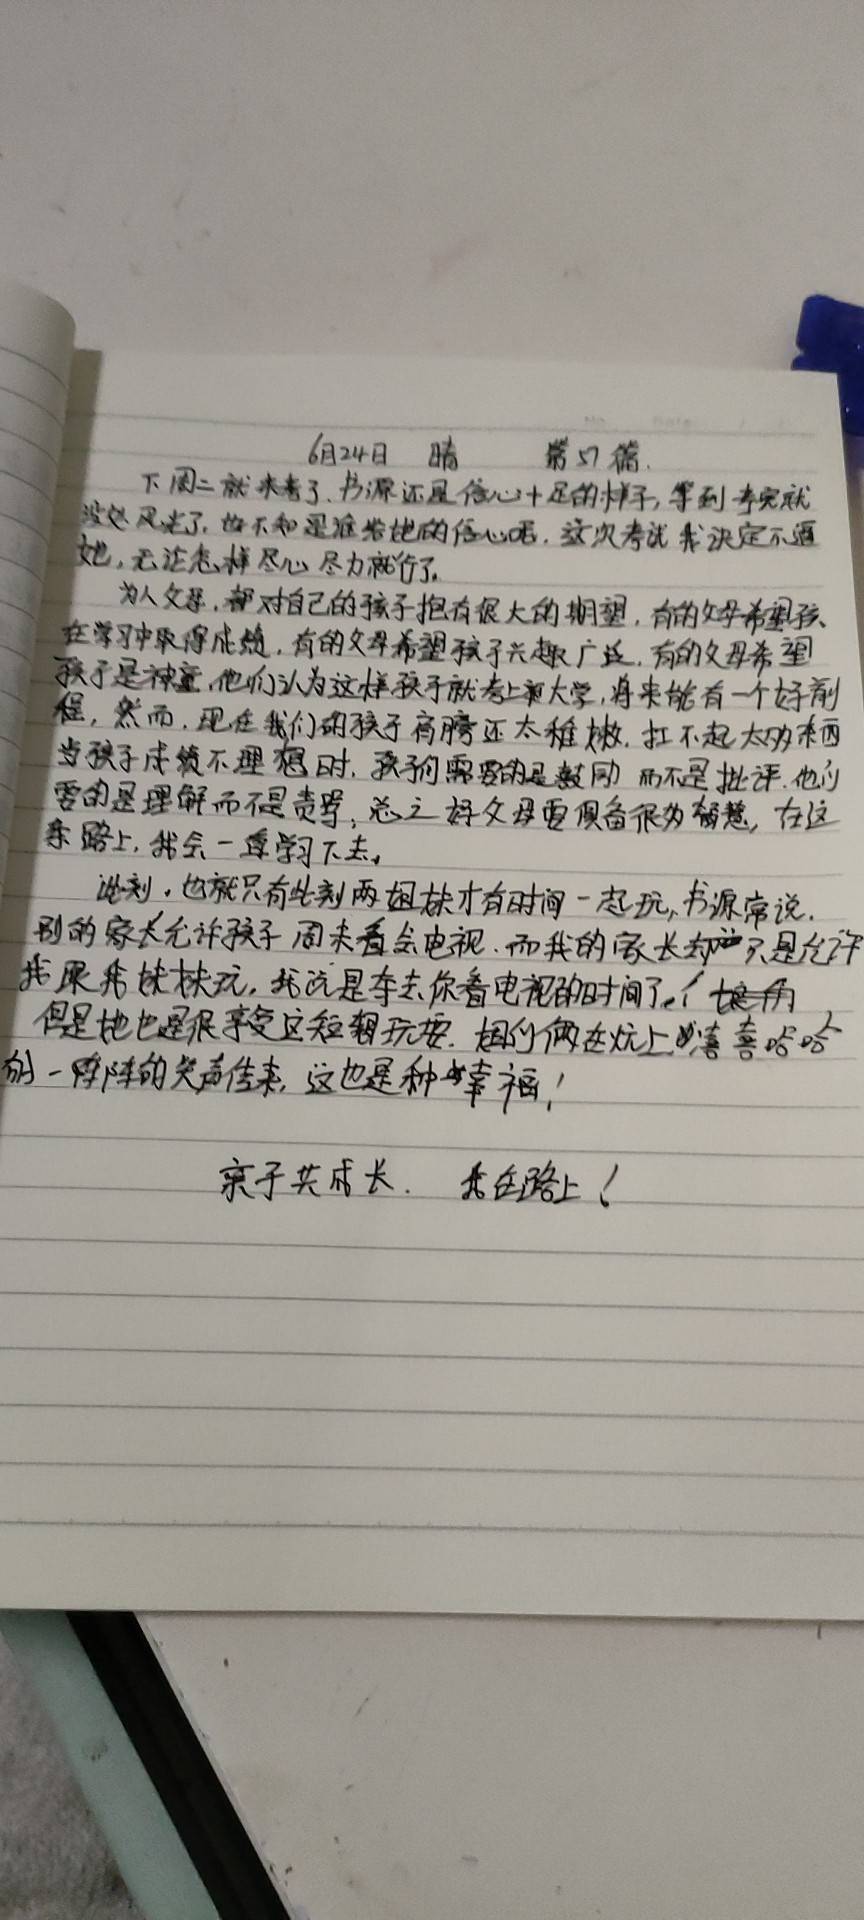 6月24日 晴 第57篇.
下周二就来考了.书源还是信心十足的样子,等到考完就
没处风光了,也不知是谁给她的信心呢.这次考试我决定不逼
她,无论怎样尽心尽力就行了。
为人父母,都对自己的孩子抱有很大的期望,有的父母希望孩
在学习中取得成绩,有的父母希望孩子兴趣广泛.有的父母希望
孩子是神童,他们认为这样孩子就考上重大学,将来能有一个好前
程,然而,现在我们的孩子肩膀还太稚嫩.扛不起太多东西
当孩子成绩不理想时.孩子们需要的是鼓励而不是批评.他们
要的是理解而不是责骂,总之好父母要具备很多智慧,在这
条路上,我会一直学习下去。
此刻,也就只有此刻两姐妹才有时间一起玩,书源常说.
别的家长允许孩子周末看会电视.而我的家长却只是允许
我跟我妹妹玩,我说是夺去你看电视的时间了,
但是她也是很享受这短暂玩耍.姐们俩在炕上嘻喜哈哈
的一阵阵的笑声传来,这也是种幸福!
亲子共成长. 我在路上!